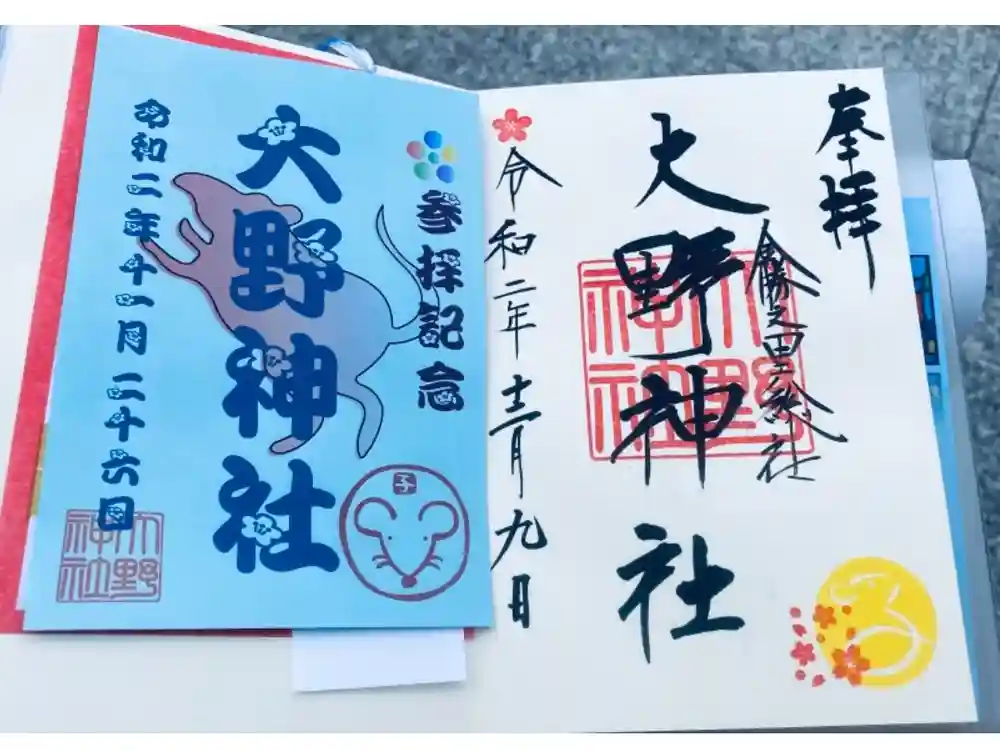 奉拝
金勝之里総社
大野神社
大野神社
令和二年十二月九日
参拝記念
大野神社
令和二年十一月二十六日
子
大野神社